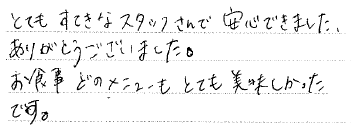 とても すてきなスタッフさんで 安心できました、
ありがとうございました。
お食事 どのメニューも とても 美味しかった
です。